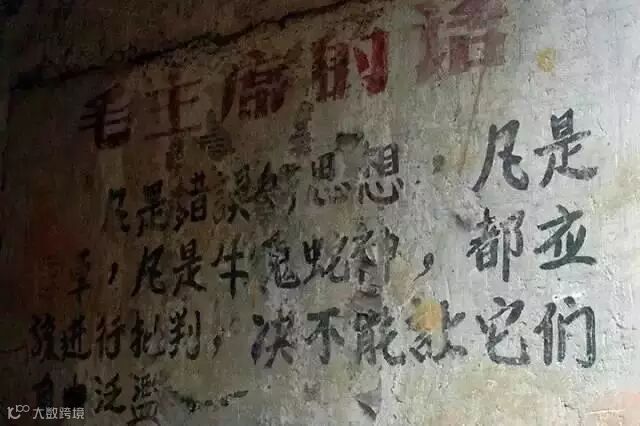 毛主席的话
凡是错误的思想，凡是
草，凡是牛鬼蛇神，都应
该进行批判，决不能让它们
自由泛滥
大数跨境